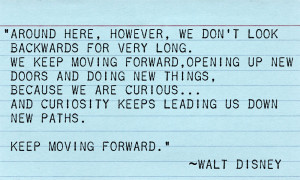 "AROUND HERE, HOWEVER, WE DON'T LOOK
BACKWARDS FOR VERY LONG.
WE KEEP MOVING FORWARD,OPENING UP NEW
DOORS AND DOING NEW THINGS,
BECAUSE WE ARE CURIOUS...
AND CURIOSITY KEEPS LEADING US DOWN
NEW PATHS.

KEEP MOVING FORWARD."
~WALT DISNEY